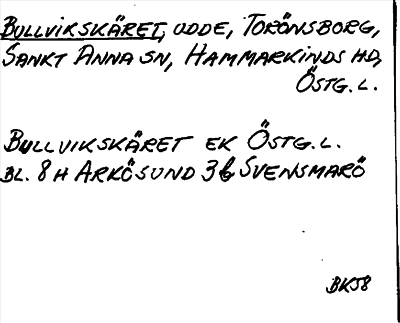 BULLVIKSKÄRET, UDDE, TORÖNSBORG,
SANKT ANNA SN, HAMMARKINDS HD,
ÖSTG. L.
BULLVIKSKÄRET EK ÖSTG. L.
BL. 8 H ARKÖSUND 3 b SVENSMARÖ
BK58